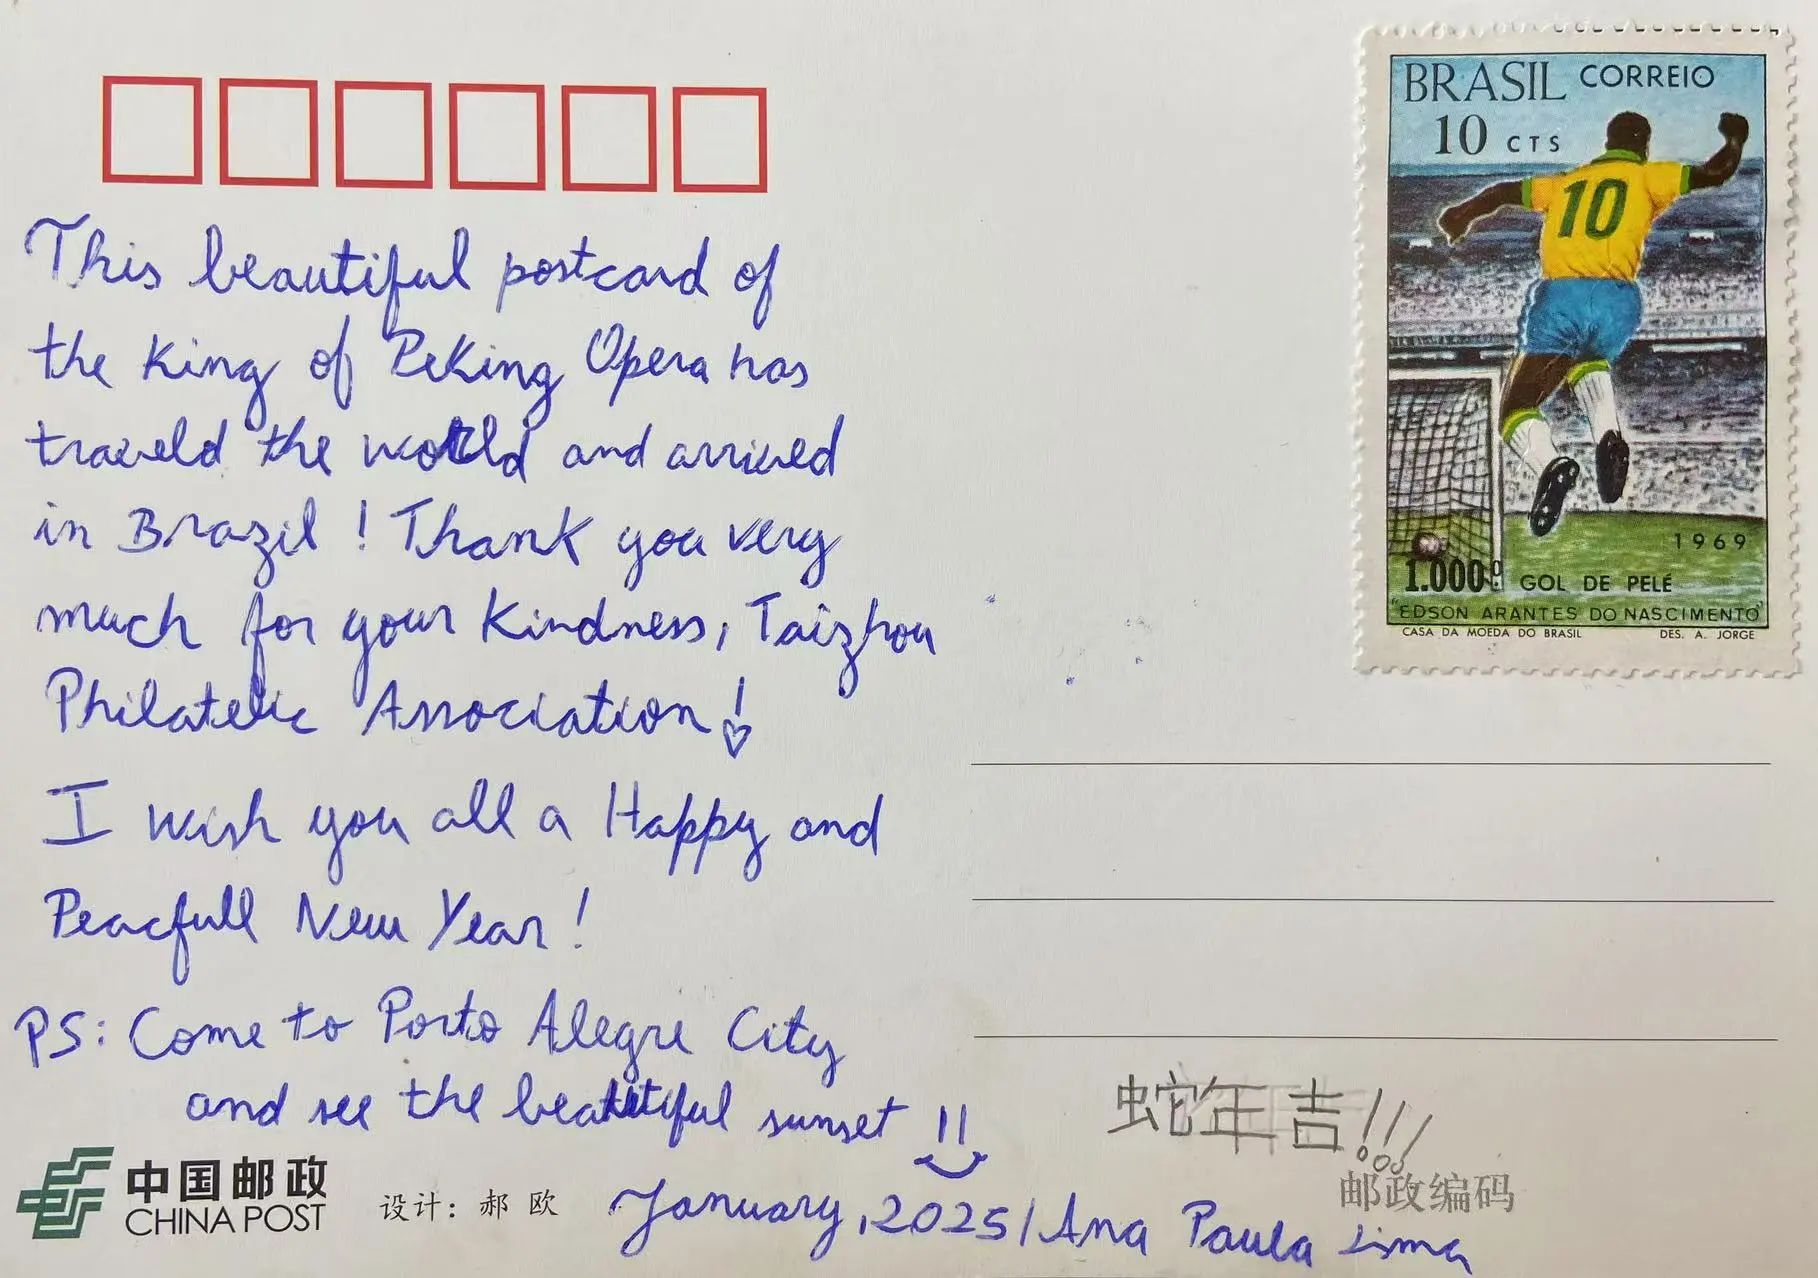 BRASIL CORREIO
10 CTS
10
1969
1.000º GOL DE PELÉ
"EDSON ARANTES DO NASCIMENTO"
CASA DA MOEDA DO BRASIL DES. A. JORGE
This beautiful postcard of
the King of Peking Opera has
traveld the world and arrived
in Brazil! Thank you very
much for your Kindness, Taizhou
Philatelic Association!
I wish you all a Happy and
Peacfull New Year!
PS: Come to Porto Alegre City
and see the beautiful sunset
蛇年吉!!!
邮政编码
中国邮政
CHINA POST
设计：郝 欧
January, 2025 / Ana Paula Lima